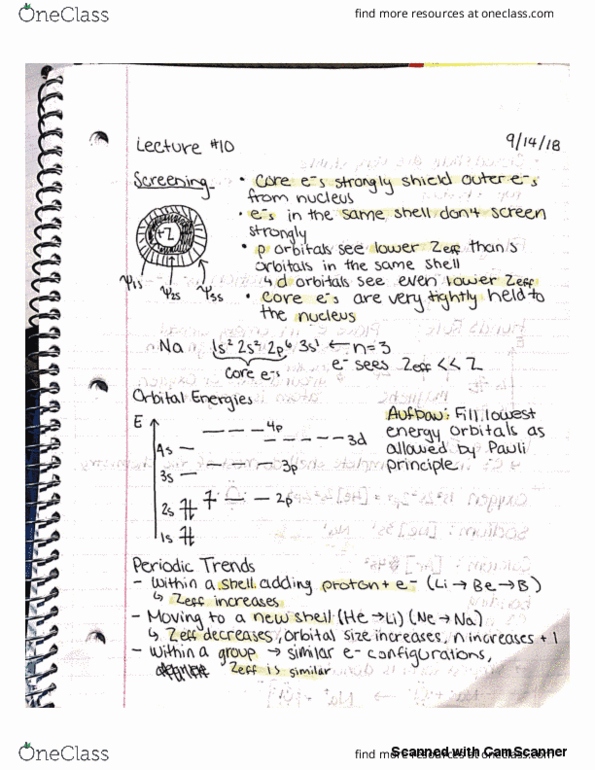 OneClass
find more resources at oneclass.com
Lecture #10
9/14/18
Screening
• Core e⁻s strongly shield outer e⁻s
from nucleus
• e⁻s in the same shell don't screen
strongly
• p orbitals see lower Zeff than s
orbitals in the same shell
↳ d orbitals see even lower Zeff
• Core e⁻s are very tightly held to
the nucleus
+Z
Ψ1s Ψ2s Ψ3s
Na 1s² 2s² 2p⁶ 3s¹ ← n=3
core e⁻s
e⁻ sees Zeff << Z
Orbital Energies
E
4p
3d
4s
3p
3s
2p
2s
1s
Aufbau: Fill lowest
energy orbitals as
allowed by Pauli
principle.
Periodic Trends
- Within a shell adding proton + e⁻ (Li → Be → B)
↳ Zeff increases
- Moving to a new shell (He → Li) (Ne → Na)
↳ Zeff decreases, orbital size increases, n increases + 1
- Within a group → similar e⁻ configurations,
Zeff is similar
OneClass
find more resources at oneclass.com
Scanned with CamScanner